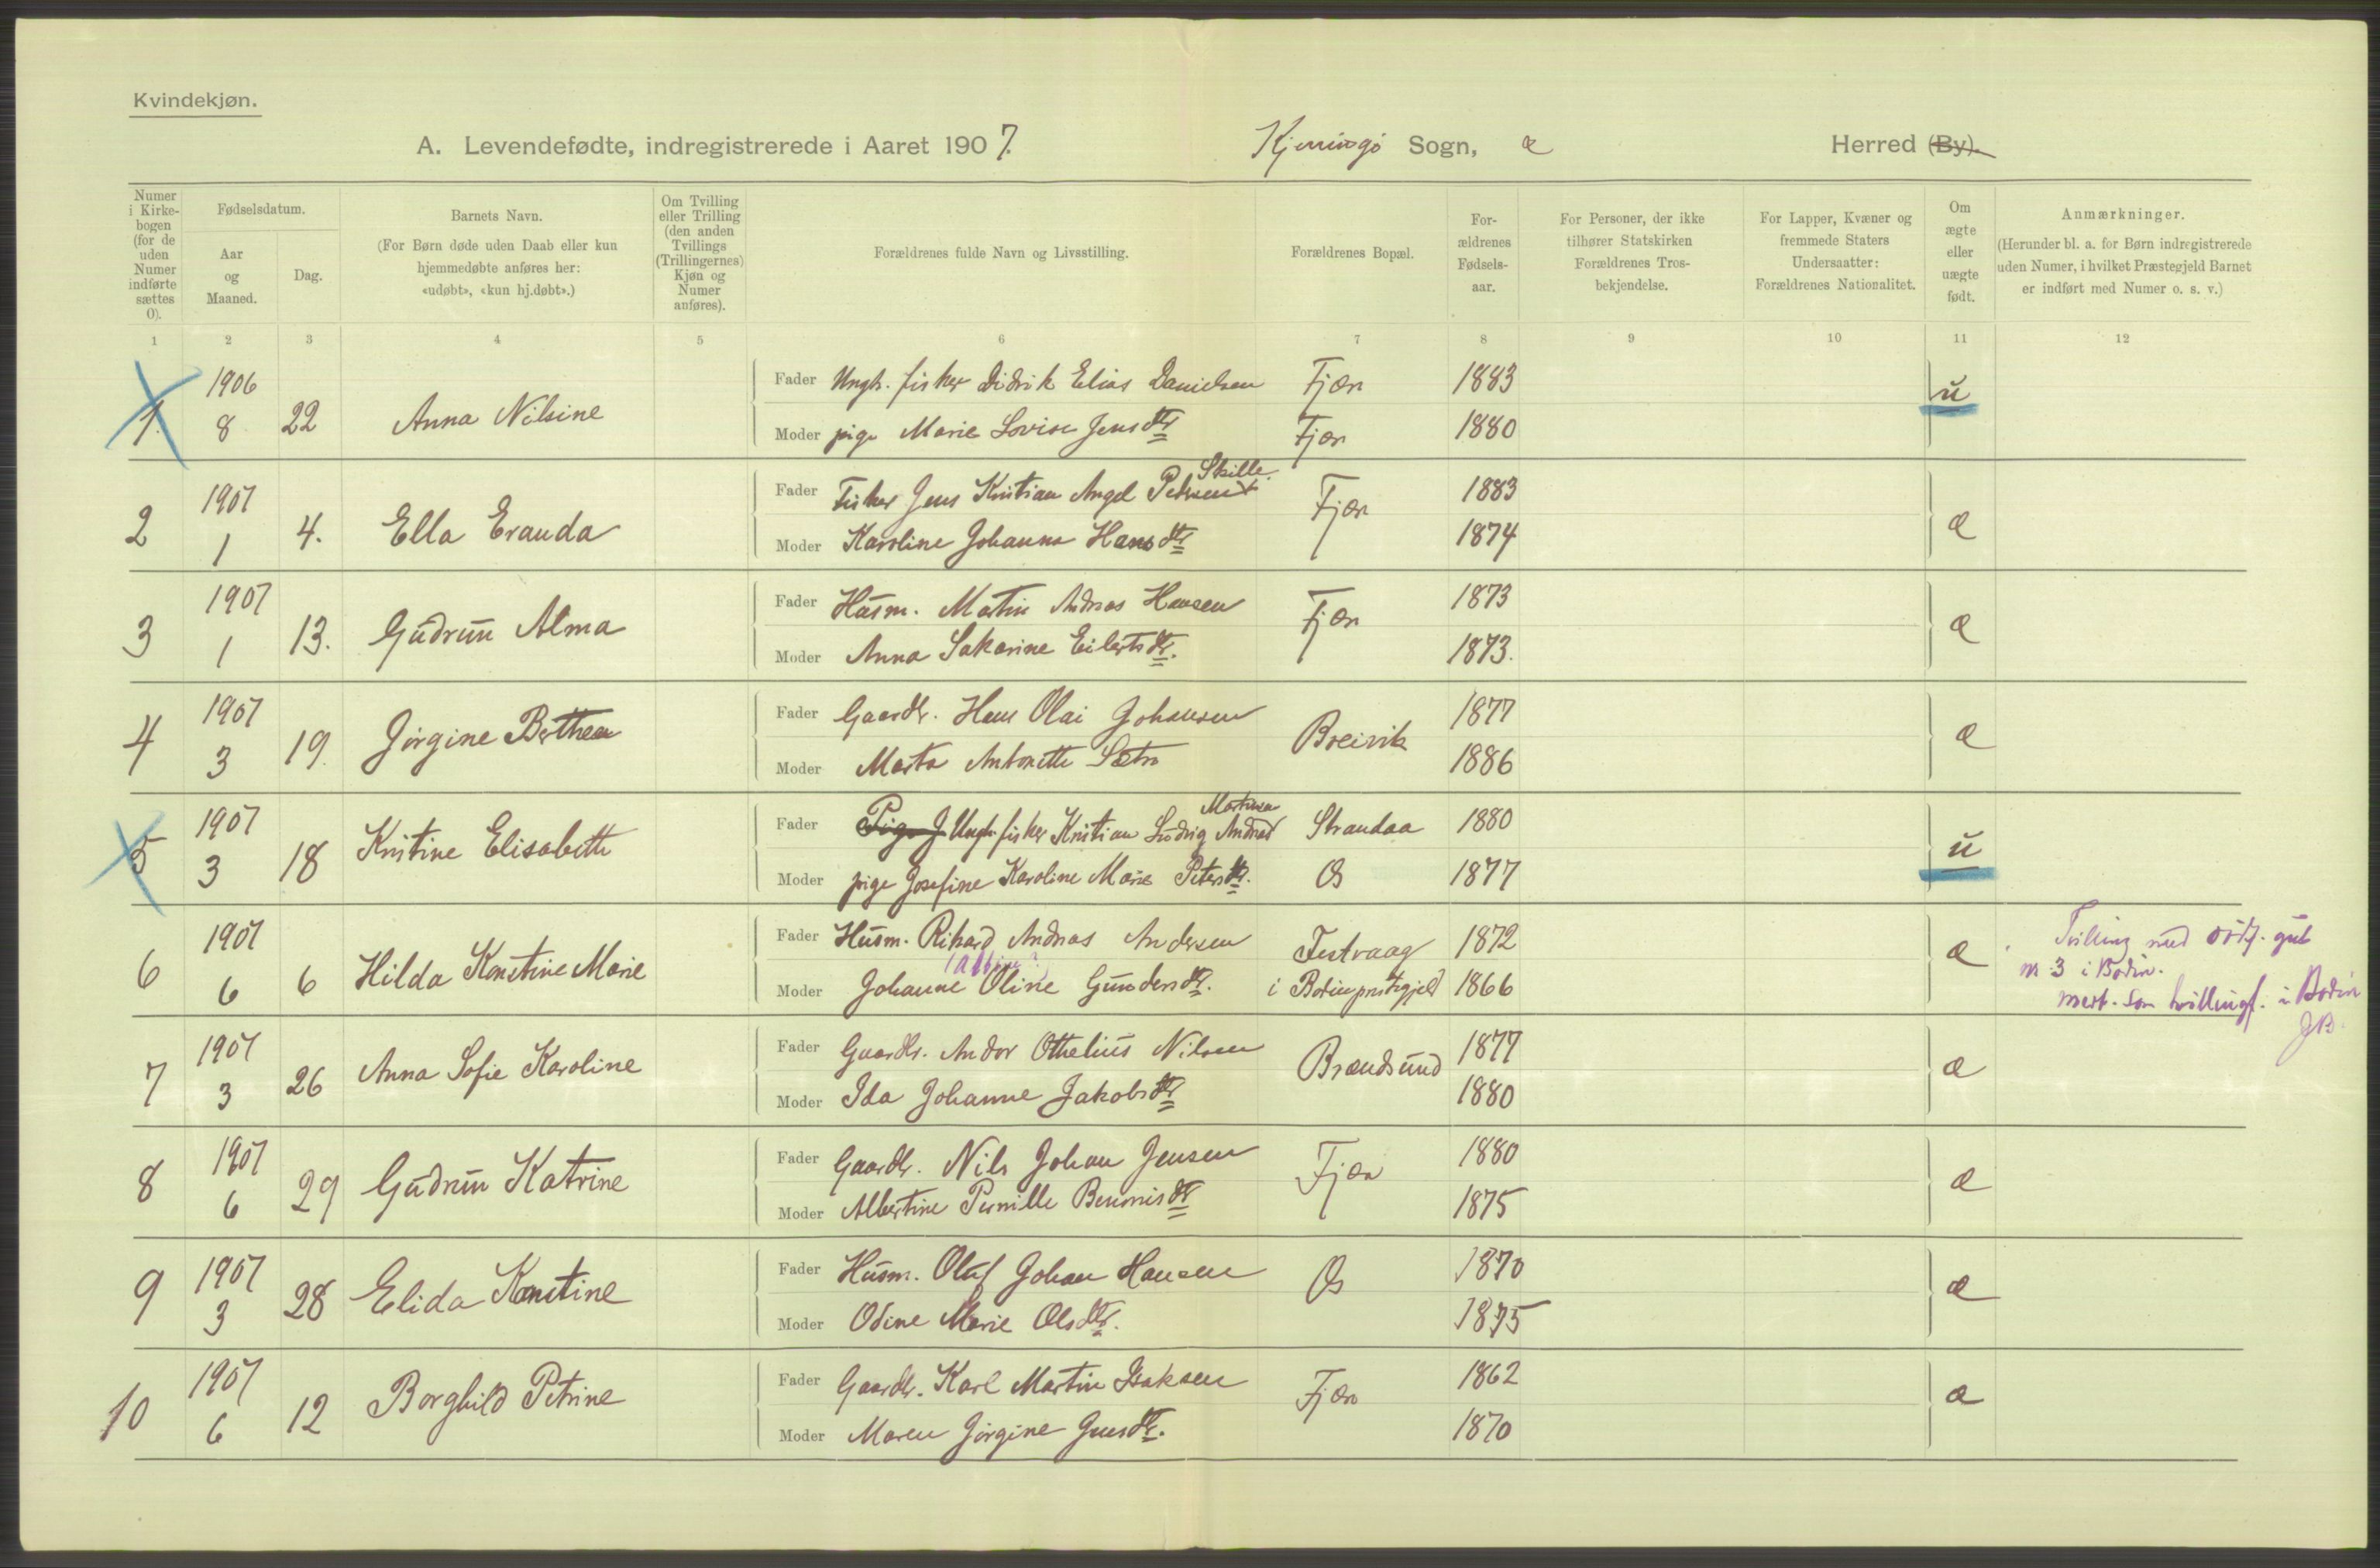 Kvindekjøn.
A. Levendefødte, indregistrerede i Aaret 1907. Kjerringø Sogn, Herred (By).
Numer i Kirkebogen (for de uden Numer indførte sættes 0).
Fødselsdatum.
Aar og Maaned.
Dag.
Barnets Navn.
(For Børn døde uden Daab eller kun hjemmedøbte anføres her: «udøbt», «kun hj.døbt».)
Om Tvilling eller Trilling (den anden Tvillings (Trillingernes) Kjøn og Numer anføres).
Forældrenes fulde Navn og Livsstilling.
Forældrenes Bopæl.
For-ældrenes Fødsels-aar.
For Personer, der ikke tilhører Statskirken Forældrenes Tros-bekjendelse.
For Lapper, Kvæner og fremmede Staters Undersaatter: Forældrenes Nationalitet.
Om ægte eller uægte født.
Anmærkninger.
(Herunder bl. a. for Børn indregistrerede uden Numer, i hvilket Præstegjeld Barnet er indført med Numer o. s. v.)
1 2 3 4 5 6 7 8 9 10 11 12
1906 Fader Ungk. fisker Didrik Elias Danielsen Fjær 1883 u
1. 8 22 Anna Nilsine Moder pige Marie Lovise Jensdtr Fjær 1880
Skille
1907 Fader Fisker Jens Kristian Angel Pedersen Fjær 1883 æ
2 1 4. Ella Eranda Moder Karoline Johanna Hansdtr 1874
1907 Fader Husm. Martin Andreas Hansen Fjær 1873 æ
3 1 13. Gudrun Alma Moder Anna Sakarine Eilertsdtr. 1873.
1907 Fader Gaardb. Hans Olai Johansen Breivik 1877 æ
4 3 19. Jørgine Berthea Moder Marta Antonette Sætra 1886
1907 Fader Pige J Ungk. fisker Kristian Ludvig Andreas Martinsen Strandaa 1880 u
5 3 18 Kristine Elisabeth Moder pige Josefine Karoline Marie Petersdtr. Øs 1877
1907 Fader Husm. Rikard Andreas Andersen Festvaag 1872 æ Tvilling med
(Albine?)
6 6 6 Hilda Konstine Marie Moder Johanne Oline Gundersdtr. i Bodin prstgjeld 1866
3 i Bodin.
som tvillingf. i Bodin
JB.
1907 Fader Gaardb. Andor Othelius Nilsen Brændsund 1877 æ
7 3 26 Anna Sofie Karoline Moder Ida Johanne Jakobsdtr 1880
1907 Fader Gaardb. Nils Johan Jensen Fjær 1880 æ
8 6 29 Gudrun Katrine Moder Albertine Pernille Benonisdtr 1875
1907 Fader Husm. Oluf Johan Hansen Øs 1870 æ
9 3 28 Elida Konstine Moder Odine Marie Olsdtr. 1875
1907 Fader Gaardb. Karl Martin Isaksen Fjær 1862 æ
10 6 12 Borghild Petrine Moder Maren Jørgine Jensdtr. 1870